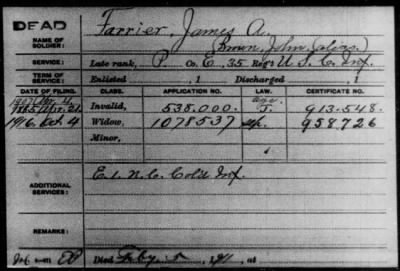 DEAD
NAME OF SOLDIER: Farrier, James A.
Brown, John (alias)
SERVICE: Late rank, P Co. E, 35 Reg't U. S. C. Inf.
TERM OF SERVICE: Enlisted , 1 Discharged , 1
DATE OF FILING. CLASS. APPLICATION NO. LAW. CERTIFICATE NO.
1907
age
1885 Apr. 21 Invalid, 538.000. J. 913.548.
1916. Oct. 4 Widow, 1078537 958726
Minor,
ADDITIONAL SERVICES: E. 1. N. C. Cold Inf.
REMARKS:
Died Feby 5, 1911, at